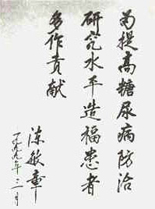 为提高糖尿病防治
研究水平造福患者
多作贡献
陈敏章
一九九九年三月